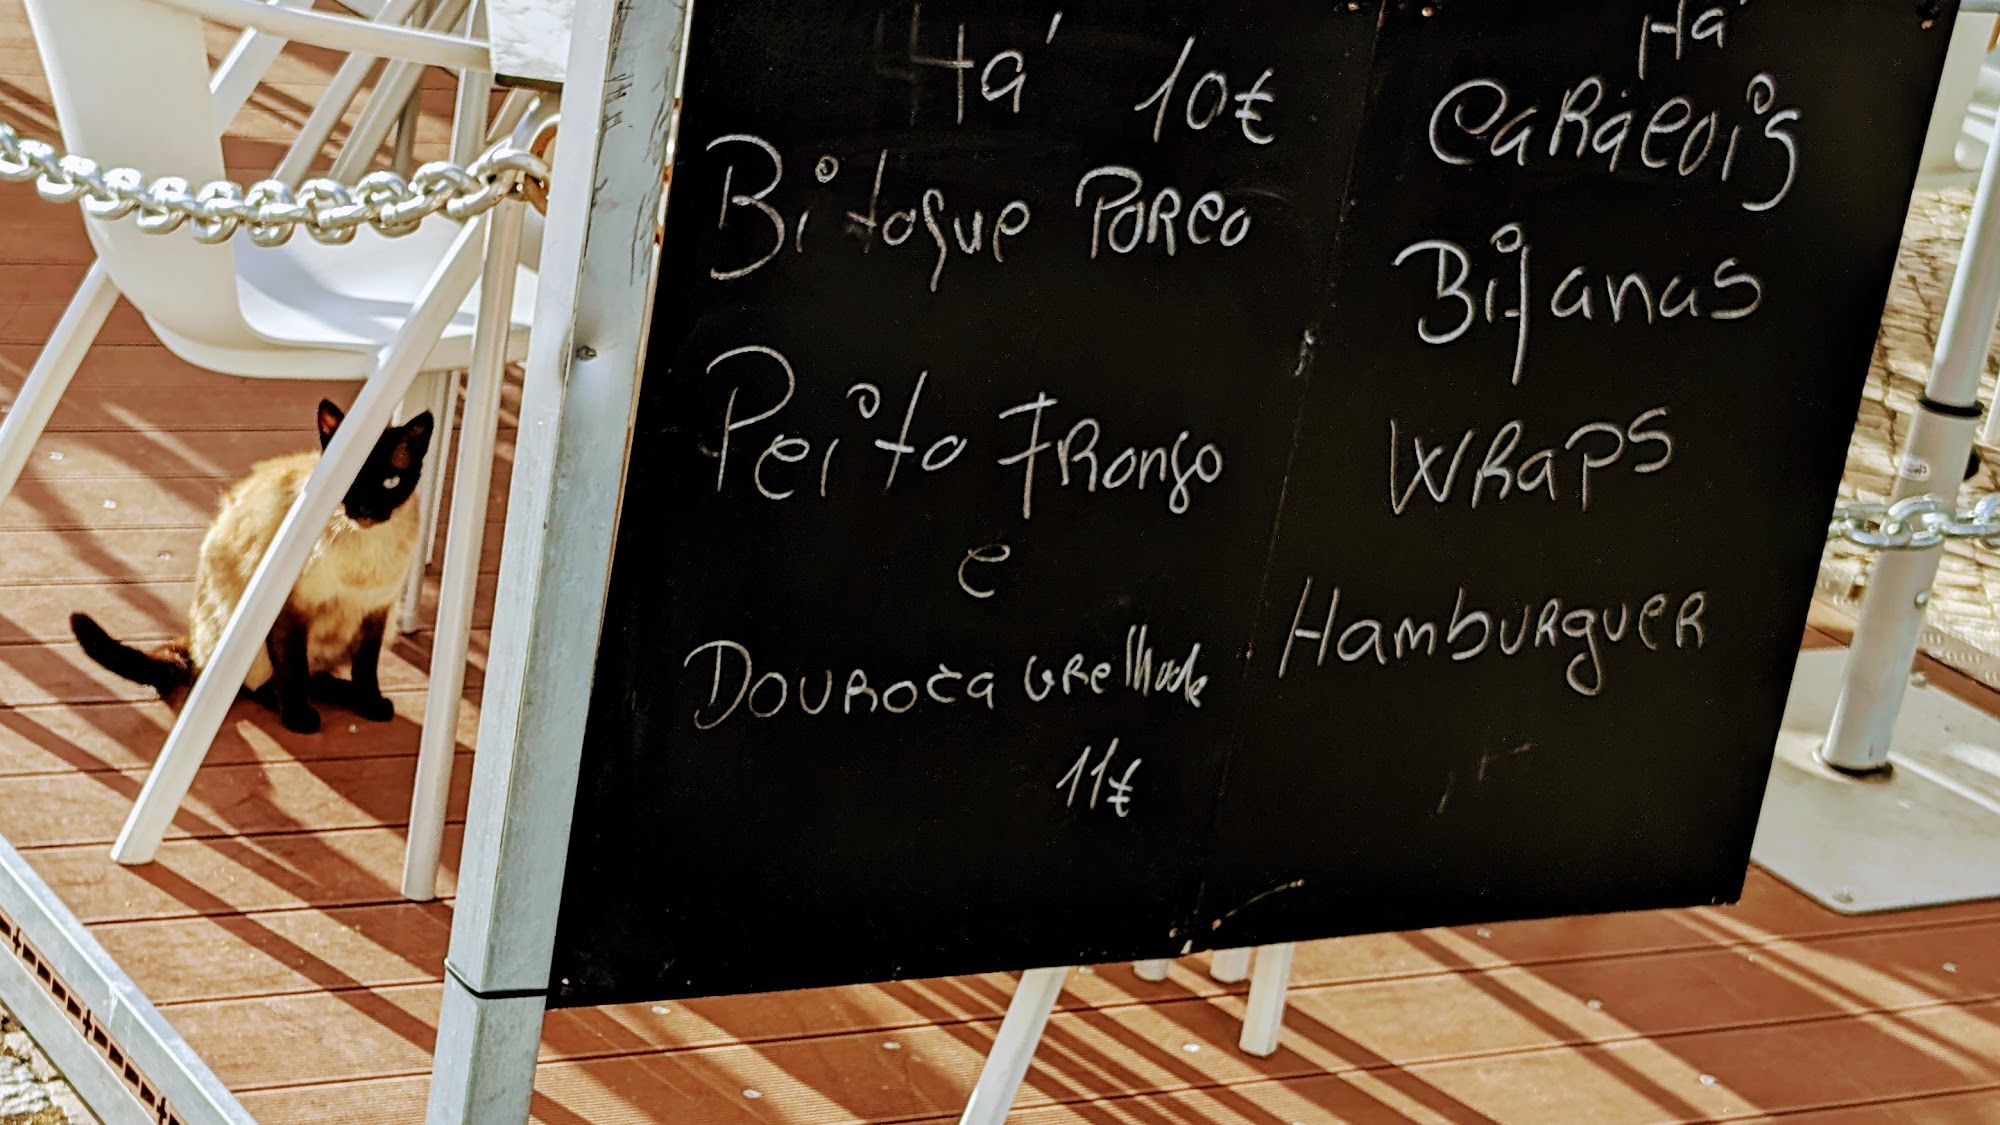 Há 10€
Bitoque Porco
Peito Frango
e
Douroca Grelhada
11€
Há
Caracois
Bifanas
Wraps
Hamburguer